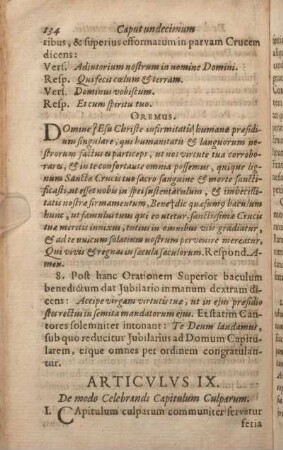 134 Caput undecimum
ribus, & superius efformatum in parvam Crucem
dicens:
Vers. Adiutorium nostrum in nomine Domini.
Resp. Qui fecit cœlum & terram.
Vers. Dominus vobiscum.
Resp. Et cum spiritu tuo.
OREMUS.
Domine Iesu Christe infirmitatis humanæ præsidi
um singulare, qui humanitatis & languorum no
strorum factus es particeps, ut nos virtute tua corrobo-
raru, & in te confortate omnia possemus, quique lig-
num Sanctæ Crucis tuo sacro sanguine & morte sancti-
ficasti, ut esset nobis in spei sustentaculum, & imbecilli
tatis nostræ firmamentum, Benedic quæsumus baculum
hunc, ut famulus tuus qui eo utetur, sanctissimæ Crucis
tuæ meritis innixus, tutius in omnibus viis gradiatur,
& ad te unicum salutium nostrum pervenire mereatur,
Qui vivis & regnas in sæcula sæculorum. Respond. A-
men.
8. Post hanc Orationem Superior baculum
benedictum dat Jubilario in manum dextram di
cens: Accipe virgam virtutis tuæ, ut in ejus præsidio
stes rectus in semita mandatorum ejus. Et statim Can-
tores solemniter intonant: Te Deum laudamus,
sub quo reducitur Jubilarius ad Domum Capitu
larem, eique omnes per ordinem congratulan-
tur.
ARTICVLVS IX.
De modo Celebrandi Capitulum Culparum.
1. Capitulum culparum communiter servetur
feria